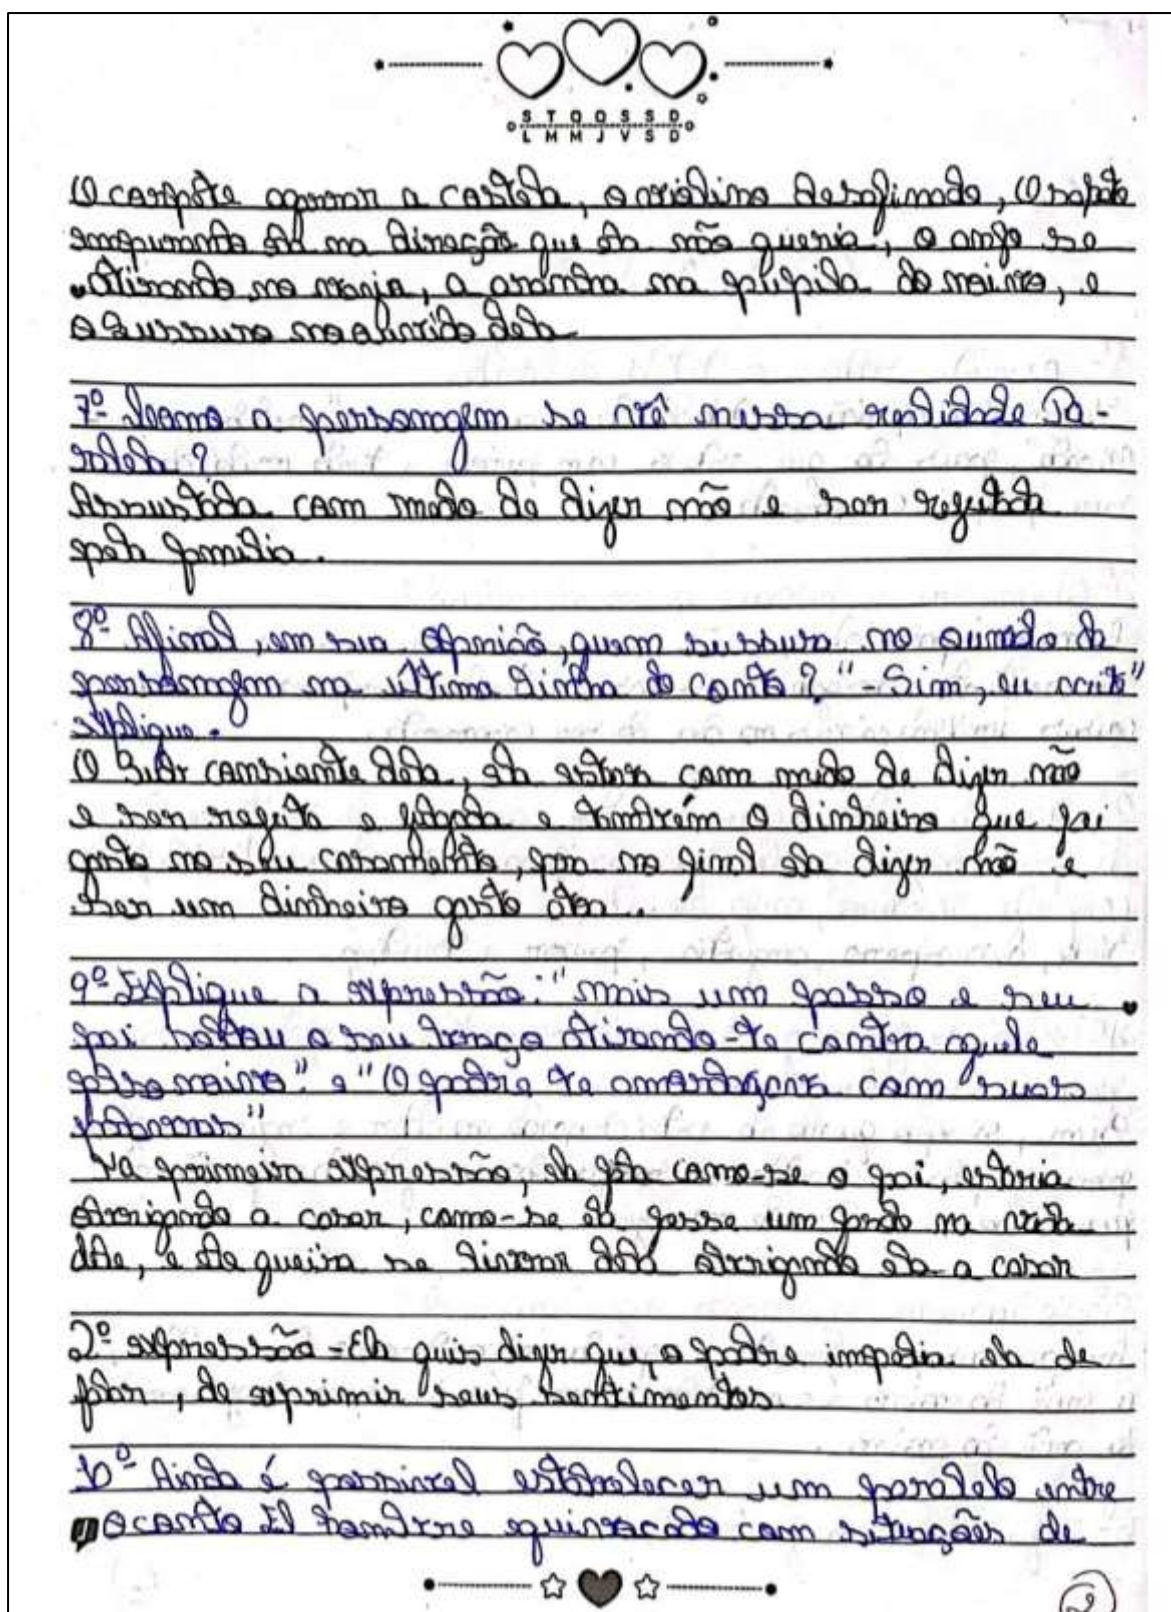 S T Q Q S S D
L M M J V S D
O carpete agarrar a costela, o violino desafinado, O sapato
empurrando ela na direção que ela não queria, o anjo se
atirando no , a aranha na pupila do noivo, e
o sussuro no ouvido dela
7º Como a personagem se vê nessa realidade Pa-
ralela?
Assustida com medo de dizer não e ser rejeitada
pela família.
8º Afinal, em sua opnião, quem sussura no ouvido da
personagem na última linha do conto? "-Sim, eu aceito"
explique.
O conciente dela, ela estar com medo de dizer não
e ser rejeita e julgada e também o dinheiro que foi
gasto no seu casamento, pra no final ela dizer não e
ser um dinheiro gasto
9º Explique a expressão: "mais um passo e seu
pai soltou o seu braço atirando-te contra aquele
noivo". e "O padre te amordaçara com suas
palavras"
Na primeira expressão, ela fala como-se o pai, estaria
obrigando a casar, como-se ela fosse um fardo na vida
dele, e ele queira se livrar dela obrigando ela a casar
2º expressão - Ela quis dizer que, o padre impedia ela de
falar, de exprimir seus sentimentos
10º Ainda é possivel estabelecer um paralelo entre
o conto El hombre equivocado com situações de
2